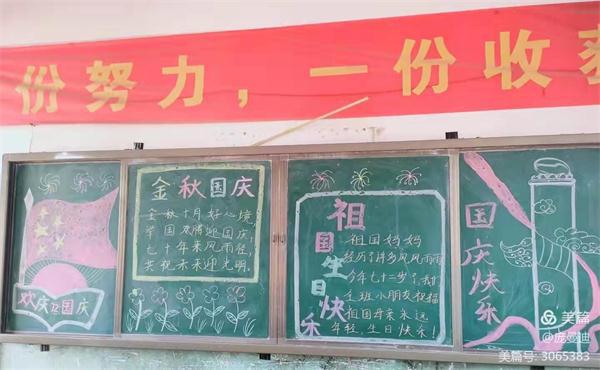 份努力，一份收获
欢庆
国庆
金秋国庆
金秋十月好心境，
举国欢腾迎国庆
七十年来风雨径，
共祝未来迎光明。
祖国生日快乐
祖国妈妈
经历了许多风风雨雨
今年七十二岁了我们
全班小朋友祝福
祖国母亲永远
年轻，生日快乐！
国庆快乐
美篇
@庞曼迪
美篇号: 3065383